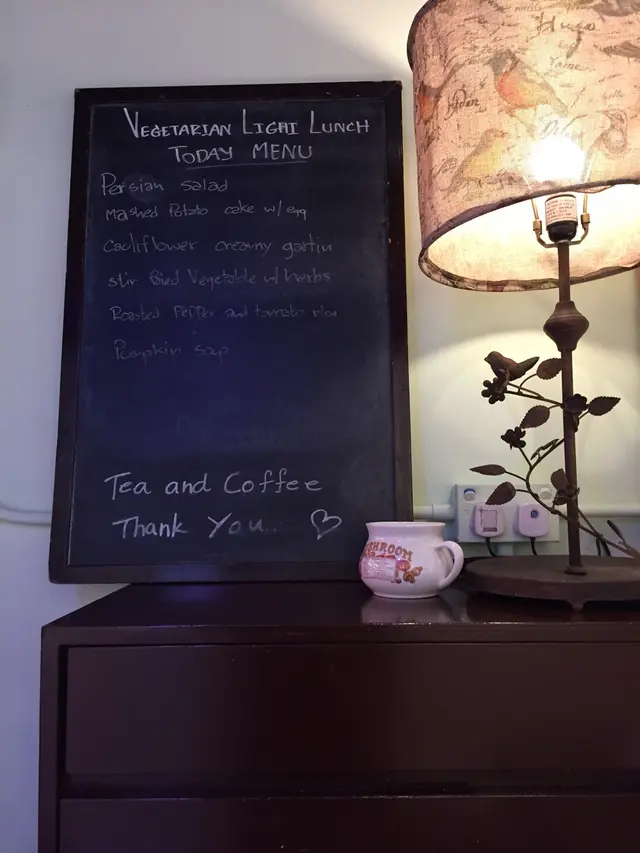 VEGETARIAN LIGHT LUNCH
TODAY MENU
Persian salad
Mashed Potato cake w/ egg
cauliflower creamy gartin
stir fried Vegetable w/ herbs
Roasted Pepper and tomato rice
Pumpkin soup
Tea and Coffee
Thank You... ♡
Hugo
MUSHROOM